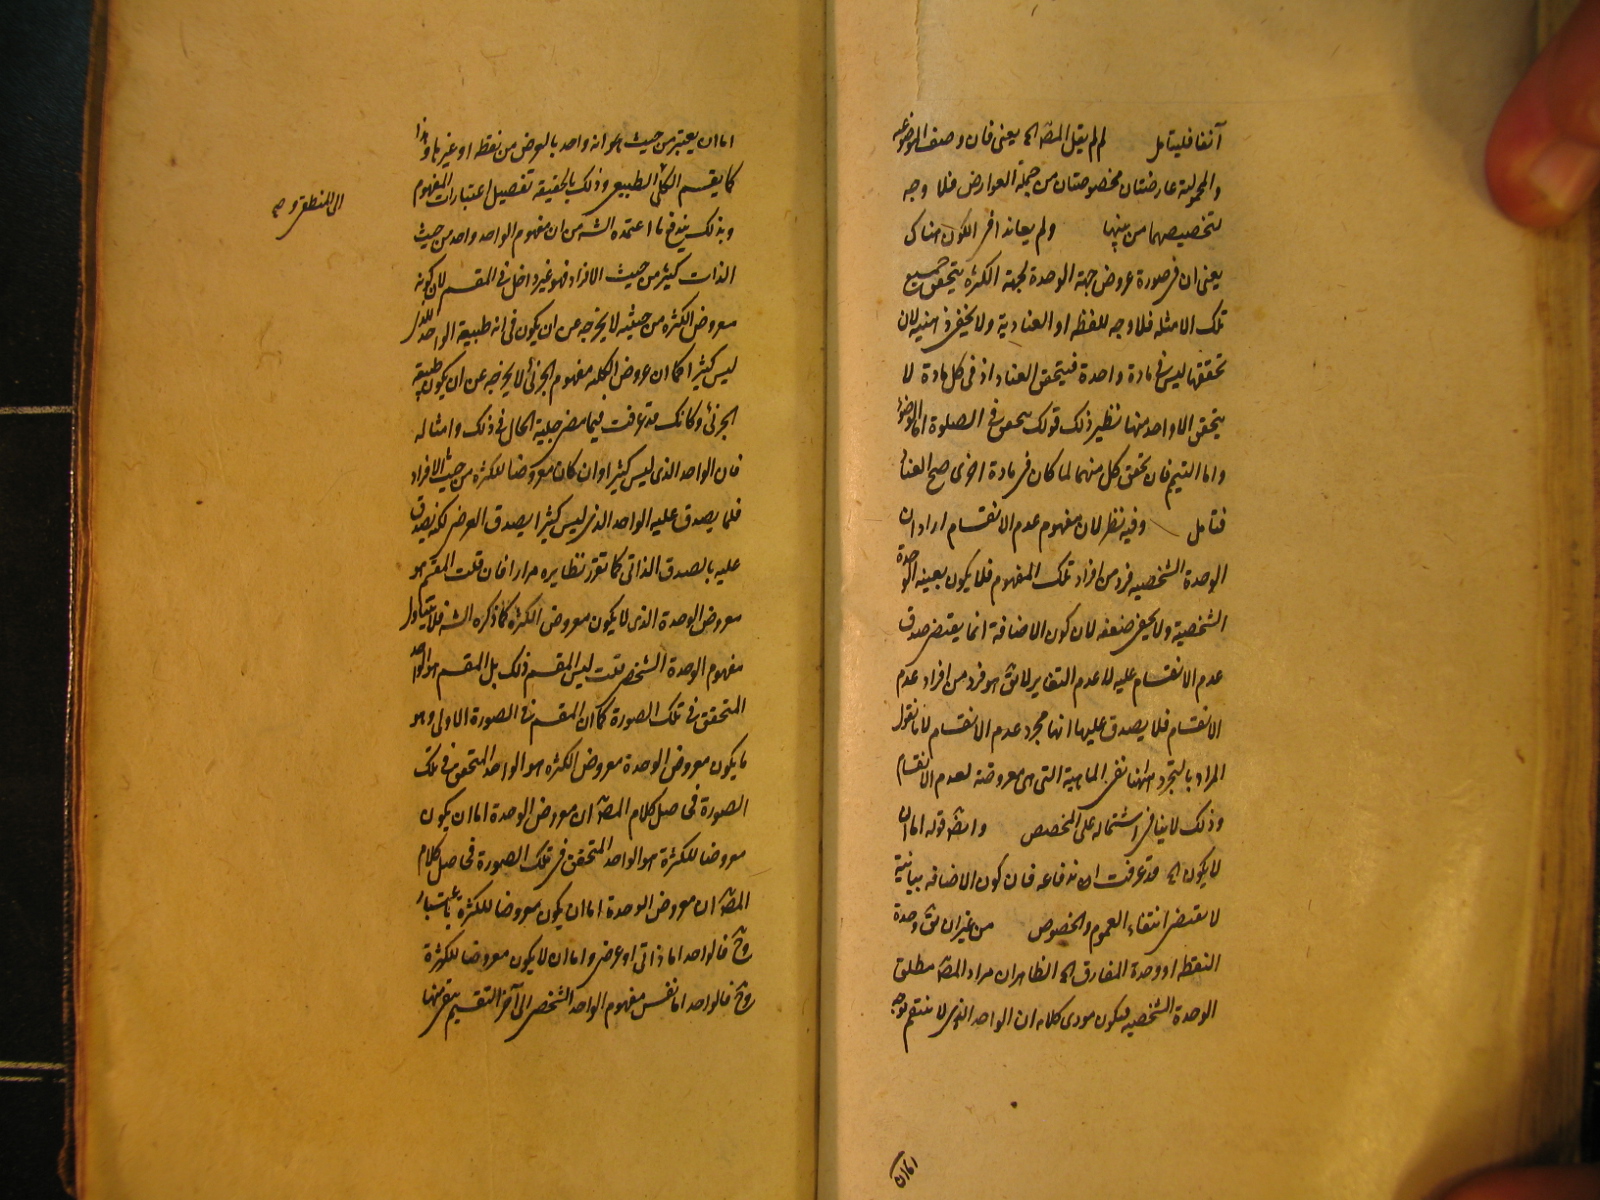 آنفا فليتامل لم لم يقل المصـ الخ يعنى فان وصف الموضوعية
والمحمولية عارضتان مخصوصتان من جملة العوارض فلا وجه
لتخصيصهما من بينها ولم يعاند افر الكون هناك
يعنى ان فى صورة عروض جهة الوحدة لجهة الكثرة يتحقق جميع
تلك الامثله فلا وجه للفظه او العنادية ولا يخفى لان
تحققها ليس فى مادة واحدة فيتحقق العناد اذ فى كل مادة لا
يتحقق الا واحد منها نظير ذلك قولك يتحقق فى الصلوة اما الوضوء
واما التيمم فان تحقق كل منهما لما كان فى مادة اخرى صح العناد
فتامل وفيه نظر لان مفهوم عدم الانقسام اراد ان
الوحدة الشخصيه فرد من افراد تلك المفهوم فلا يكون بعينه الوحدة
الشخصية ولا يخفى ضعفه لان كون الاضافة انما يقتضى صدق
عدم الانقسام عليه لا عدم التغاير لا يق هو فرد من افراد عدم
الانقسام فلا يصدق عليها انها مجرد عدم الانقسام لانا نقول
المراد بالمجرد ههنا نفس الماهية التى هى معروضة لعدم الانقسام
وذلك لا ينافى اشتماله على المخصص وايضـ قوله اما ان
لا يكون الخ قد عرفت اندفاعه فان كون الاضافه بيانية
لا يقتضى انتفاء العموم والخصوص من غير ان يق وحدة
النقطه او وحدة المفارق الخ الظاهر ان مراد المصـ مطلق
الوحدة الشخصيه فيكون مودى كلامه ان الواحد الذى لا ينقسم بوجه
اما ان
اما ان يعتبر من حيث هو انه واحد بالعرض من نقطه او غيرها وهذا
كما يقسم الكلى الطبيعى وذلك بالحقيقه تفصيل اعتبارات المفهوم
الى المنطقى و صح
وبذلك يندفع ما اعتمده الشـ من ان مفهوم الواحد واحد من حيث
الذات كثير من حيث الافراد فهو غير داخل فى المقسم لان كونه
معروض الكثرة من حيثيه لا يخرجه من ان يكون فى انه طبيعة الواحد الذى
ليس كثيرا كما ان عروض الكليه مفهوم الجزئى لا يخرجه عن ان يكون طبيعة
الجزئى وكانك قد عرفت فيما مضى جلية الحال فى ذلك وامثاله
فان الواحد الذى ليس كثيرا وان كان معروضا للكثرة من حيث الافراد
فلما يصدق عليه الواحد الذى ليس كثيرا يصدق العرض لكنه يصدق
عليه بالصدق الذاتى كما تقرر نظايره مرارا فان قلت المقسم هو
معروض الوحدة الذى لا يكون معروض الكثرة كما ذكره الشـ فلا يتناول
مفهوم الوحدة الشخصى قلت ليس المقسم ذلك بل المقسم هو الواحد
المتحقق فى تلك الصورة كما ان المقسم فى الصورة الاولى وهو
ما يكون معروض الوحدة معروض الكثره هو الواحد المتحقق فى تلك
الصورة فحاصل كلام المصـ ان معروض الوحدة اما ان يكون
معروضا للكثرة هو الواحد المتحقق فى تلك الصورة فحاصل كلام
المصـ ان معروض الوحدة اما ان يكون معروضا للكثرة باعتبار
وح فالواحد اما ذاتى او عرضى واما ان لا يكون معروضا للكثرة
وح فالواحد اما نفس مفهوم الواحد الشخصى الى آخر التقسيم بقى منها